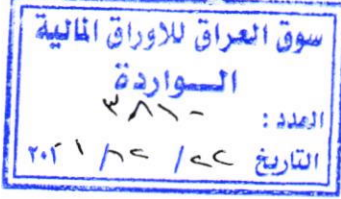 سوق العراق للاوراق المالية
الـــواردة
العدد : ٣٨١٠
التاريخ ٢٢ / ١٢ / ٢٠٢١